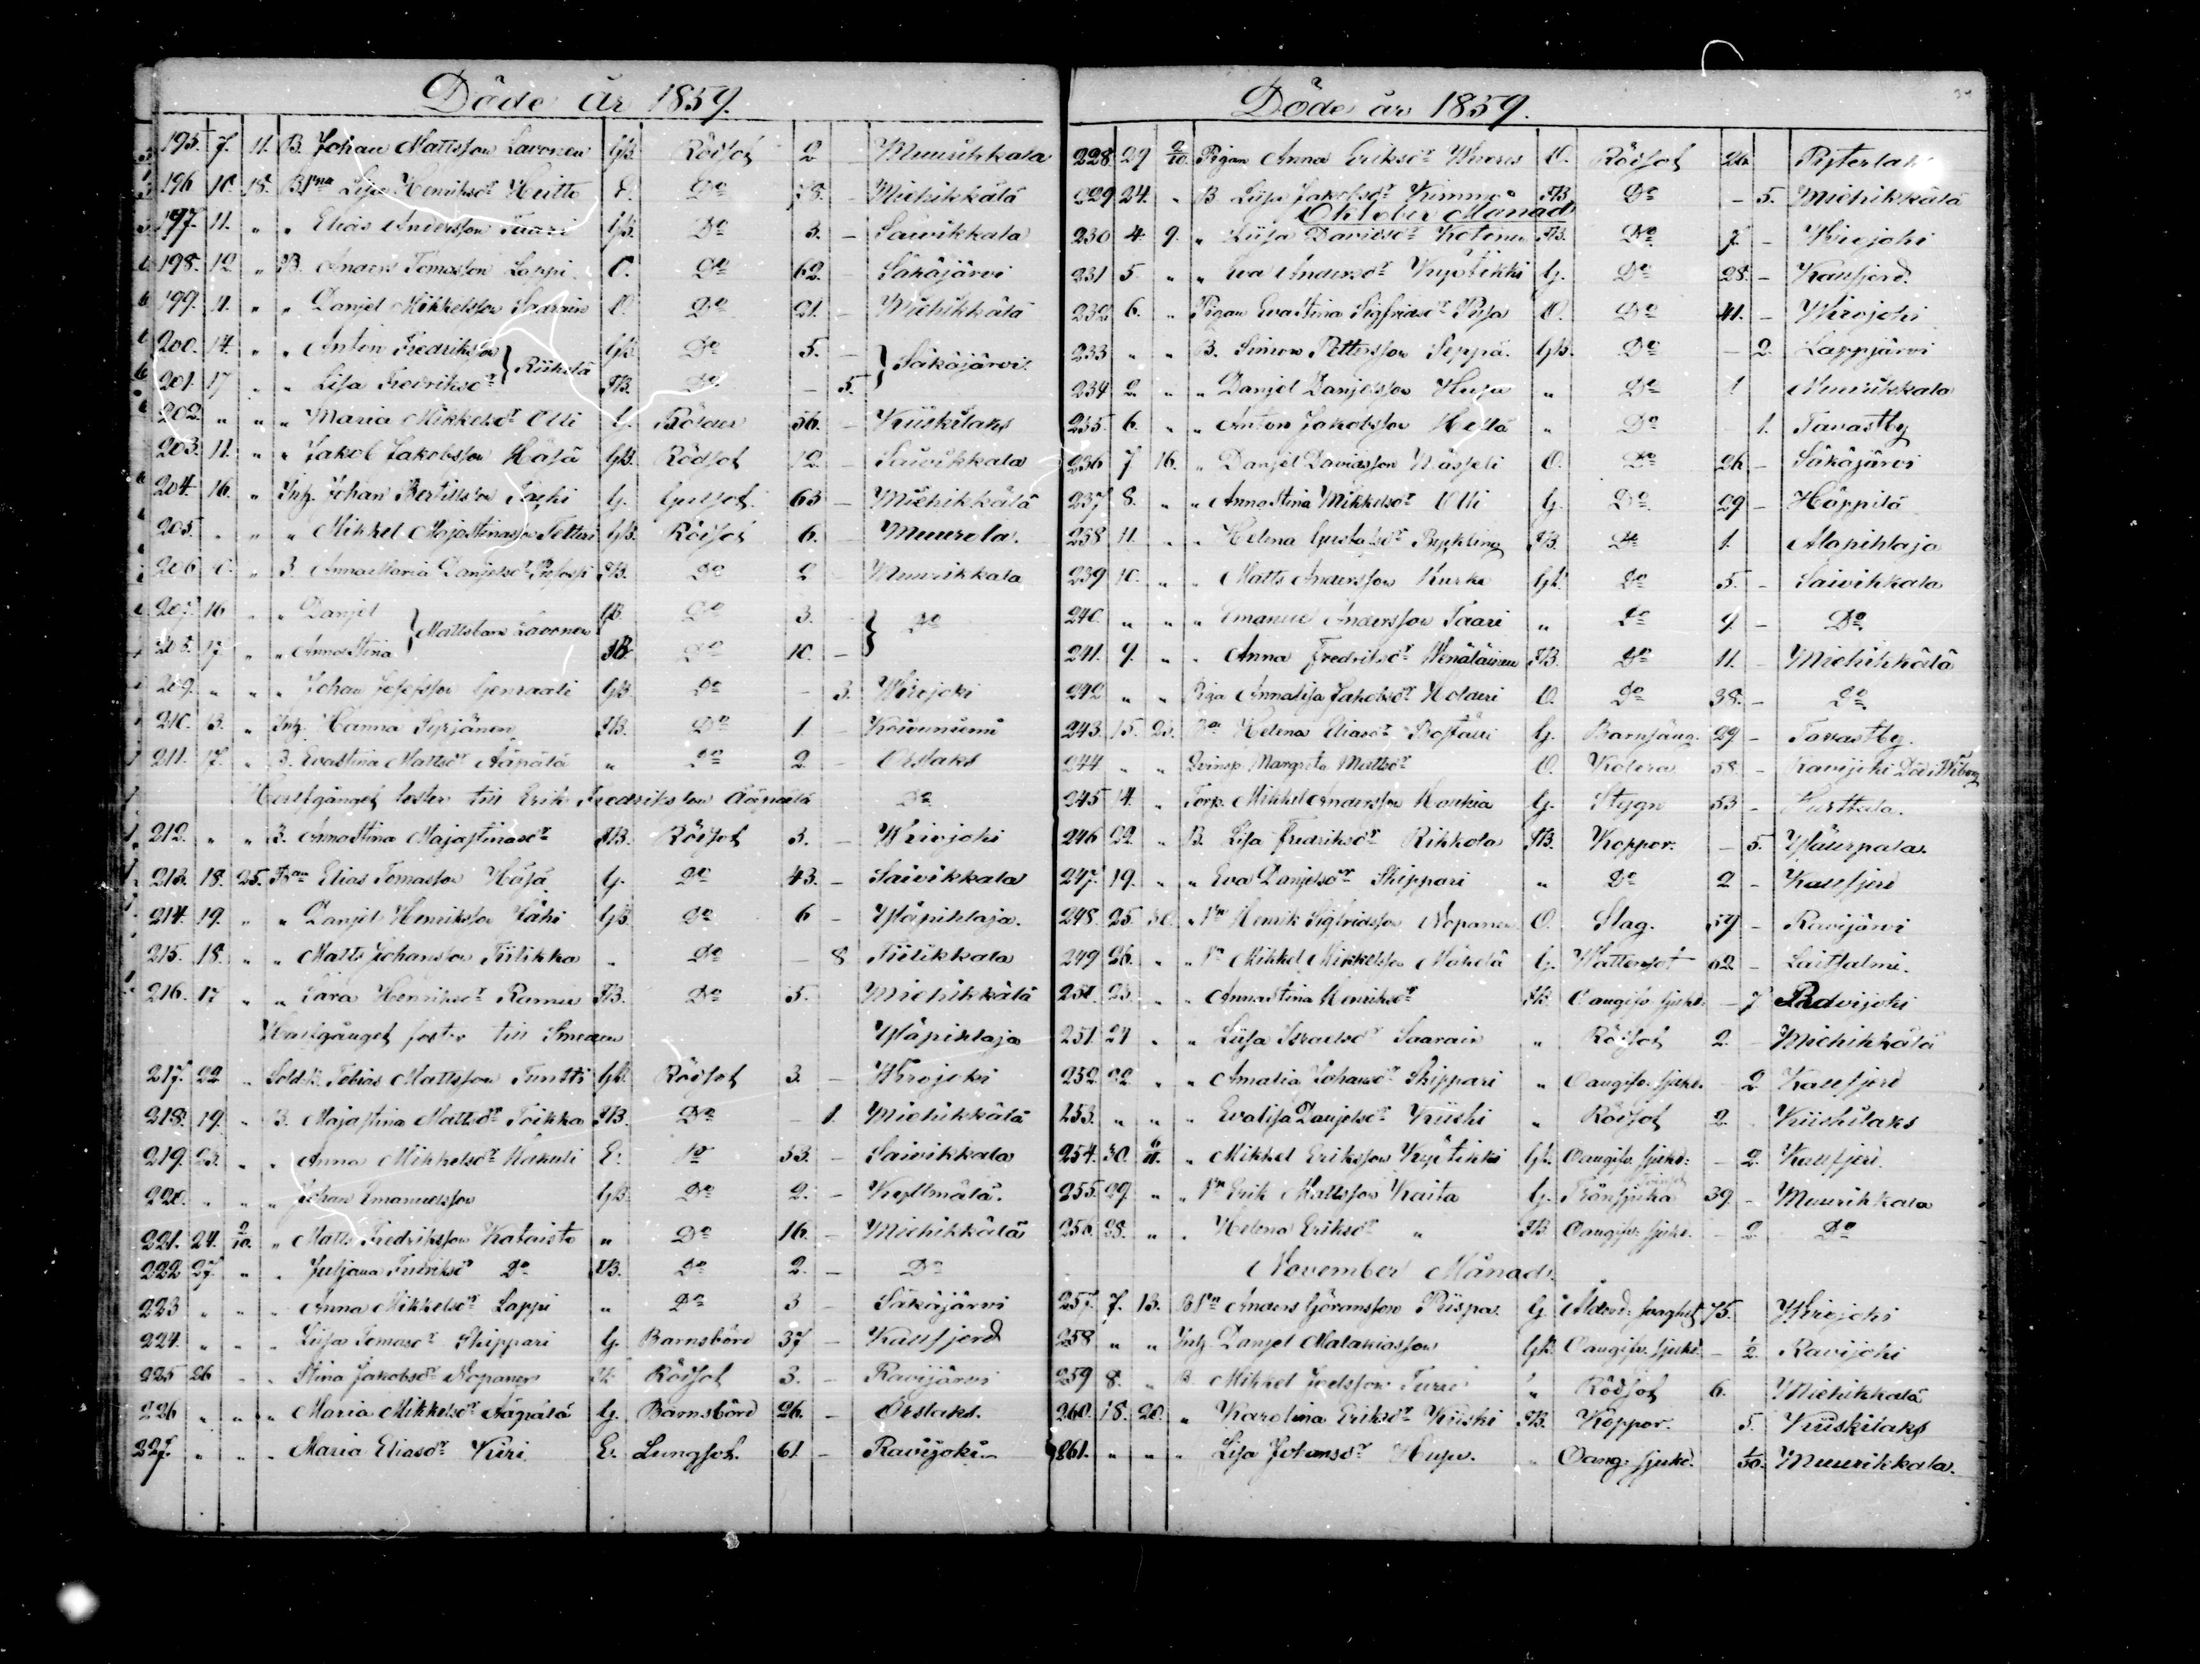 Döde år 1859.
195. 7. 11. B. Johan Mattsson Lavonen GB. Rödsot 2 Muurikkala
196 10. 18. Lisa Henriksdr Heitto E. Do 78. – Miehikkälä
197. 11. " " Elias Andersson Taari GB. Do 3. – Saivikkala
198. 12. " B. Anders Tomasson Lappi O. Do 62. – Säkäjärvi
199. 11. " " Danjel Mikkelsson Saarain O. Do 21. – Miehikkälä
200. 14. " " Anton Fredriksson } Riikelä GB. Do 5. – } Säkäjärvi.
201. 17 " " Lisa Fredriksdr FB. Do – 5.
202. " " " Maria Mikkelsdr Olli G. 56. – Kiiskilaks
203. 11. " " Jakob Jakobsson Häsä GB. Rödsot 12. – Saivikkala
204. 16. " Inh. Johan Bertilsson G. Gulsot. 63 – Miehikkälä
205. " " " Mikkel Majastinasson GB. Rödsot 6. – Muurola.
206 " 3. Anna Maria Danjelsdr FB. Do 2 Muurikkala
207. 16 " " Danjel } Mattsbarn Lavonen GB. Do 3. } Do
208. 17 " " Annastina FB Do 10. –
209. " " " Johan Josefsson Genraali GB. Do – 3. Wirojoki
210. 13. " Inh. Hanna Syrjänen FB. Do 1. – Koivuniemi
211. 17. " B. Evastina Mattsdr Äåpälä " Do 2. – Orslaks
foster till Erik Fredriksson Do
212. " " B. Annastina Majastinasdr FB. Rödsot 3. – Wirojoki
213. 18. 25. Elias Tomasson Häsä G. Do 43. – Saivikkala
214. 19. " " Danjel Henriksson Jähi GB. Do 6 – Yläpihlaja.
215. 18. " " Matts Johansson Tiilikka " Do – 8 Tiilikkala
216. 17 " " Sara Henriksdr FB. Do 5. Miehikkälä
foster till Yläpihlaja
217. 22 " Tobias Mattsson Tuntti GB. Rödsot 3. – Wirojoki
218. 19. " B. Majastina Mattsdr Toikka FB. Do – 1. Miehikkälä
219. 23. " " Anna Mikkelsdr Kakuli E. Do 53. – Saivikkala
220. " " " Johan Emanuelsson GB. Do 2. – Kyllmälä.
221. 24. 2/10. " Matts Fredriksson Kataisto " Do 16. – Miehikkälä
222 27. " " Juljana Fredriksdr Do FB. Do 2. – Do
223 " " " Anna Mikkelsdr Lappi " Do 3 – Säkäjärvi
224. " " " Liisa Tomasdr Skippari G. Barnsbörd 37 – Kallfjerd
225 26 " " Stina Jakobsdr Nopanen FB. Rödsot 3. – Ravijärvi
226 " " " Maria Mikkelsdr Äåpälä G. Barnsbörd 26. – Orslaks.
227. " " " Maria Eliasdr Kiiri E. Lungsot. 61 – Ravijoki.
Döde år 1859.
228 29 2/10. Pigan Anna Eriksdr O. Rödsot 24 Pyterlaks
229 24. " B. Liisa Jakobsdr Kimmo FB Do – 5. Miehikkälä
Oktober Månad
230 4. 9. " Liisa Davidsdr Kotinen FB. Do 7. – Wirojoki
231 5. " " Eva Andersdr G. Do 28. – Kallfjerd.
232 6. " Pigan Evastina Sigfridsdr O. Do 41. – Wirojoki
233 " " B. Simon Pettersson Seppä. GB. Do – 2. Lappjärvi
234 2. " " Danjel Danjelsson Husu " Do 1 Muurikkala
235. 6. " " Anton Jakobsson Hellä " Do 1. Tavastby
236 7 16. " Danjel Davidsson O. Do 26 – Säkäjärvi
237 8. " " Annastina Mikkelsdr Olli G. Do 29 – Häppilä
238 11. " " Helena Gustafsdr Byckling FB. Do 1. Alapihlaja
239 10. " " Matts Andersson Kurki GB. Do 5. – Saivikkala
240. " " " Emanuel Andersson Taari " Do 9. – Do
241. 9. " " Anna Fredriksdr Wenäläinen FB. Do 11. – Miehikkälä
242 " " Piga Annalisa Jakobsdr Holderi O. Do 38. – Do
243. 15. 23. Helena Eliasdr G. Barnsäng. 29 – Tavastby.
244 " " Margreta Mattsdr O. Kolera 58. – Ravijoki Död i Wiborg
245 14. " Torp. Mikkel Andersson Haukia G. Stygn 53 – Hurttala.
246 22. " B. Lisa Fredriksdr Rikkola FB. Koppor. – 5. Yläurpala.
247. 19. " " Eva Danjelsdr Skippari " Do 2 – Kallfjerd
248. 25. 30. " Henrik Sigfridsson Nopanen O. Slag. 59 – Ravijärvi
249 26. " " Mikkel Mikkelsson Mäkelä G. Wattensot 62. – Laitsalmi.
250. 23. " " Annastina Henriksdr FB. Oangifv. sjukd. – 7 Ravijoki
251. 21 " " Liisa Israelsdr Saarain " Rödsot 2. – Miehikkälä
252. 22. " " Amalia Johansdr Skippari " Oangifv. sjukd. – 2 Kallfjerd
253. " " " Evalisa Danjelsdr Kiiski " Rödsot 2. Kiiskilaks
254. 30. 6/11. " Mikkel Eriksson GB. Oangifv. sjukd: – 2. Kallfjerd.
255. 29 " " Erik Mattsson Kaita G. Trånsjuka 39. – Muurikkala
256. 28. " " Helena Eriksdr " FB. Oangifv. sjukd. – 2. Do
November Månad.
257. 7. 13. Anders Göransson Piispa. G. Ålderd. svaghet 75. Wirojoki
258 " " Inh. Danjel Malakiasson GB. Oangifv. sjukd. – 1/2. Ravijoki
259 8. " B. Mikkel Joelsson Turre " Rödsot 6. Miehikkälä
260. 18. 20. " Karolina Eriksdr Kiiski FB. Koppor. 5. Kiiskilaks
261. " " " Lisa Johansdr Husu. " Oang. sjukd. 1/30. Muurikkala.